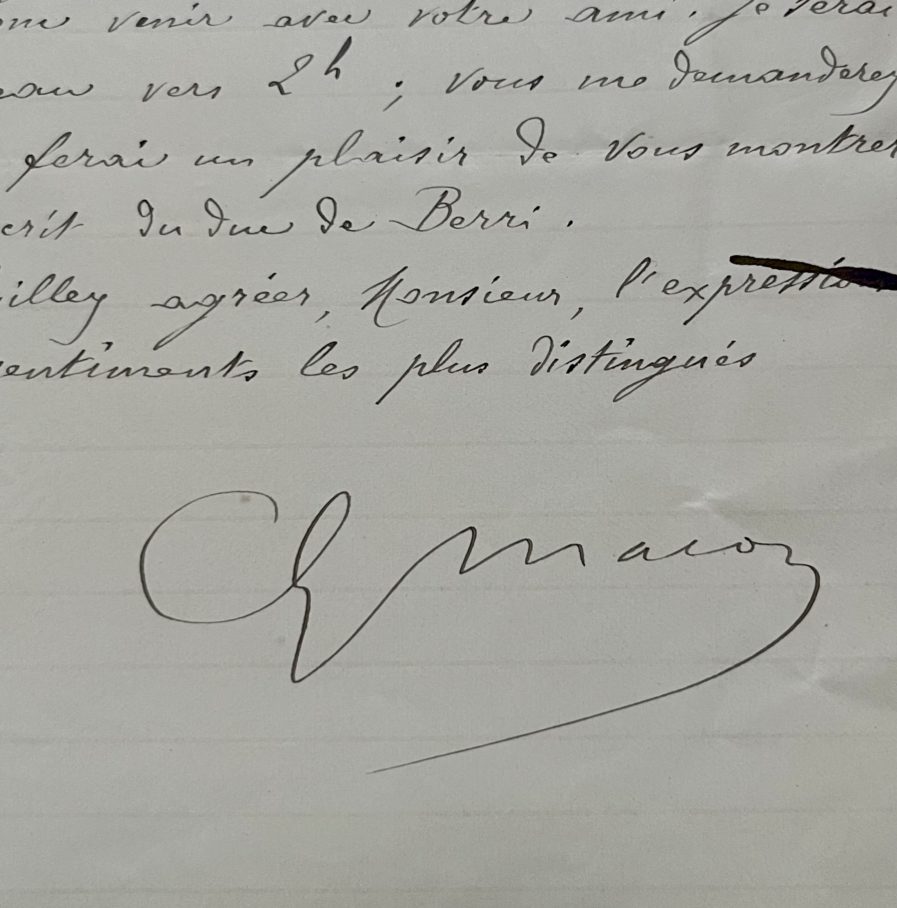 venir avec votre ami. Je serai
eau vers 2h ; vous me demanderez
ferai un plaisir de vous montrer
crit du duc de Berri.
illez agréer, Monsieur, l'expression
sentiments les plus distingués
Ch Macon